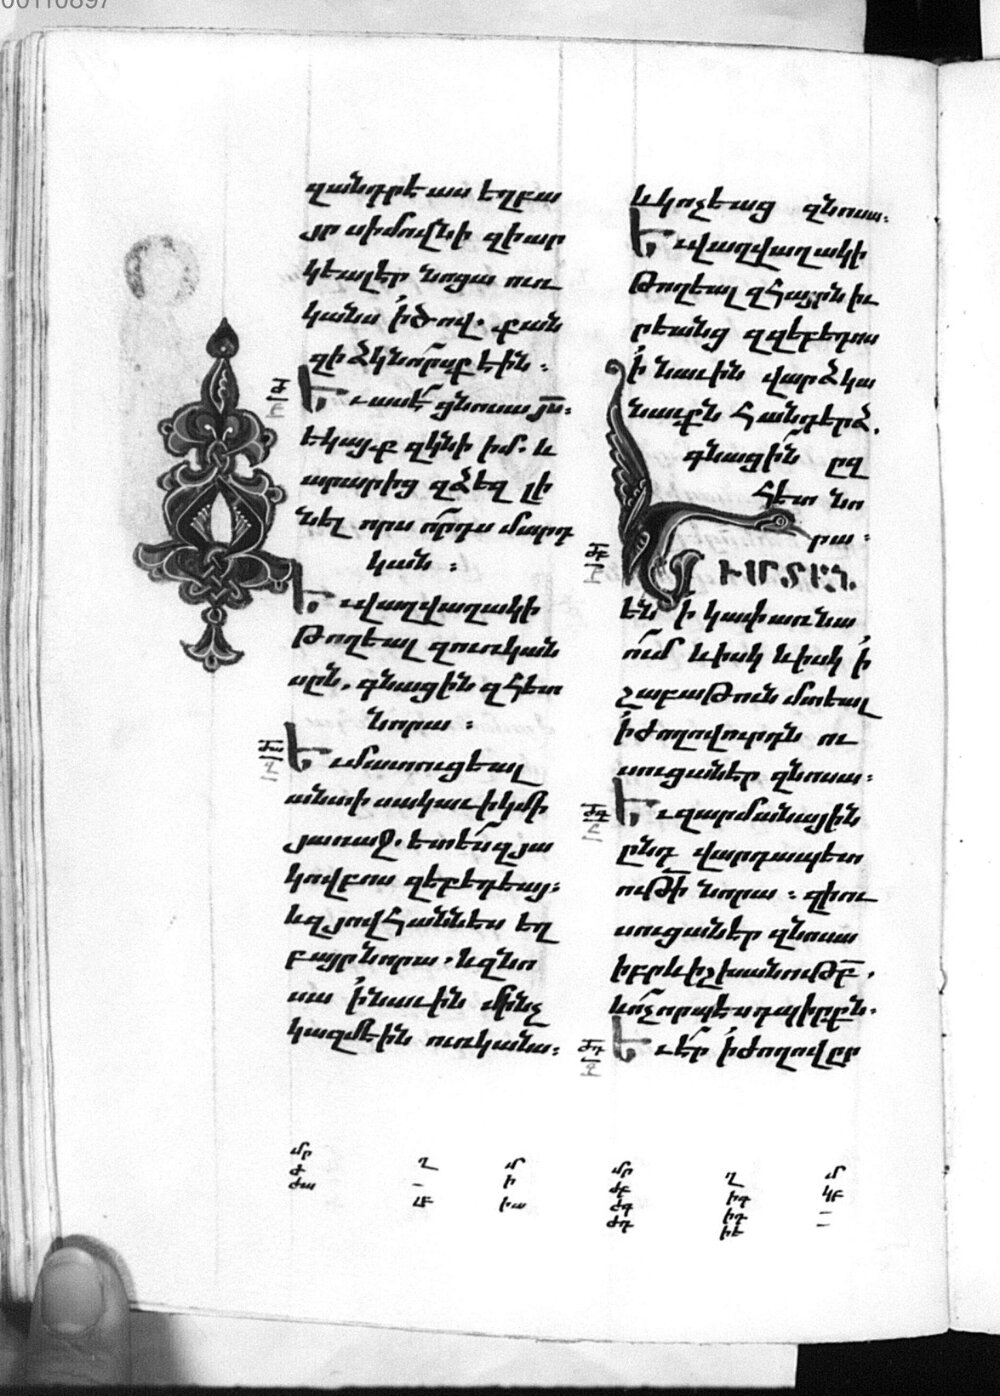 00110897
զանդրէաս եղբա
յր սիմովնի զիար
կեալեր նոցա ուռ
կանս ՛ի ծով. քան
զի ձկնորսք էին։
Ժ
Եւ ասէ ցնոսա յս։
եկայք զկնի իմ. և
արարից զձեզ լի
նել որսորդս մարդ
կան։
Եւ վաղվաղակի
թողեալ զուռկան
սըն, գնացին զհետ
նորա։
ԺԱ
Եւ մատուցեալ
անտի սակաւիկմի
յառաջ. ետես զյա
կովբոս զեբեդեայ։
և զյովհաննես եղ
բայր նորա. և զնո
սա ՛ի նաւին մինչ
կազմեին ուռկանս։
և կոչեաց զնոսա։
Եւ վաղվաղակի
թողեալ զհայրն իւ
րեանց զզեբեդոս
՛ի նաւին վարձկա
նաւքն հանդերձ.
գնացին ըզ
հետ նո
րա։
ԺԲ
ՒՄՏԵՂ.
են ՛ի կափառնա
ում և իսկ և իսկ ՛ի
շաբաթուն մտեալ
՛ի ժողովուրդն ու
սուցաներ զնոսա։
ԺԳ
Եւ զարմանային
ընդ վարդապետ
ութի նորա։ զի ու
սուցաներ զնոսա
իբրև իշխանութբ.
և ոչ որպես դպիրքն.
ԺԴ
Եւ էր ՛ի ժողովըր
մր
ժ
ժա
ղ
մ
ի
իա
մր
ժբ
ժգ
ժդ
ղ
իգ
իդ
իե
մ
կբ